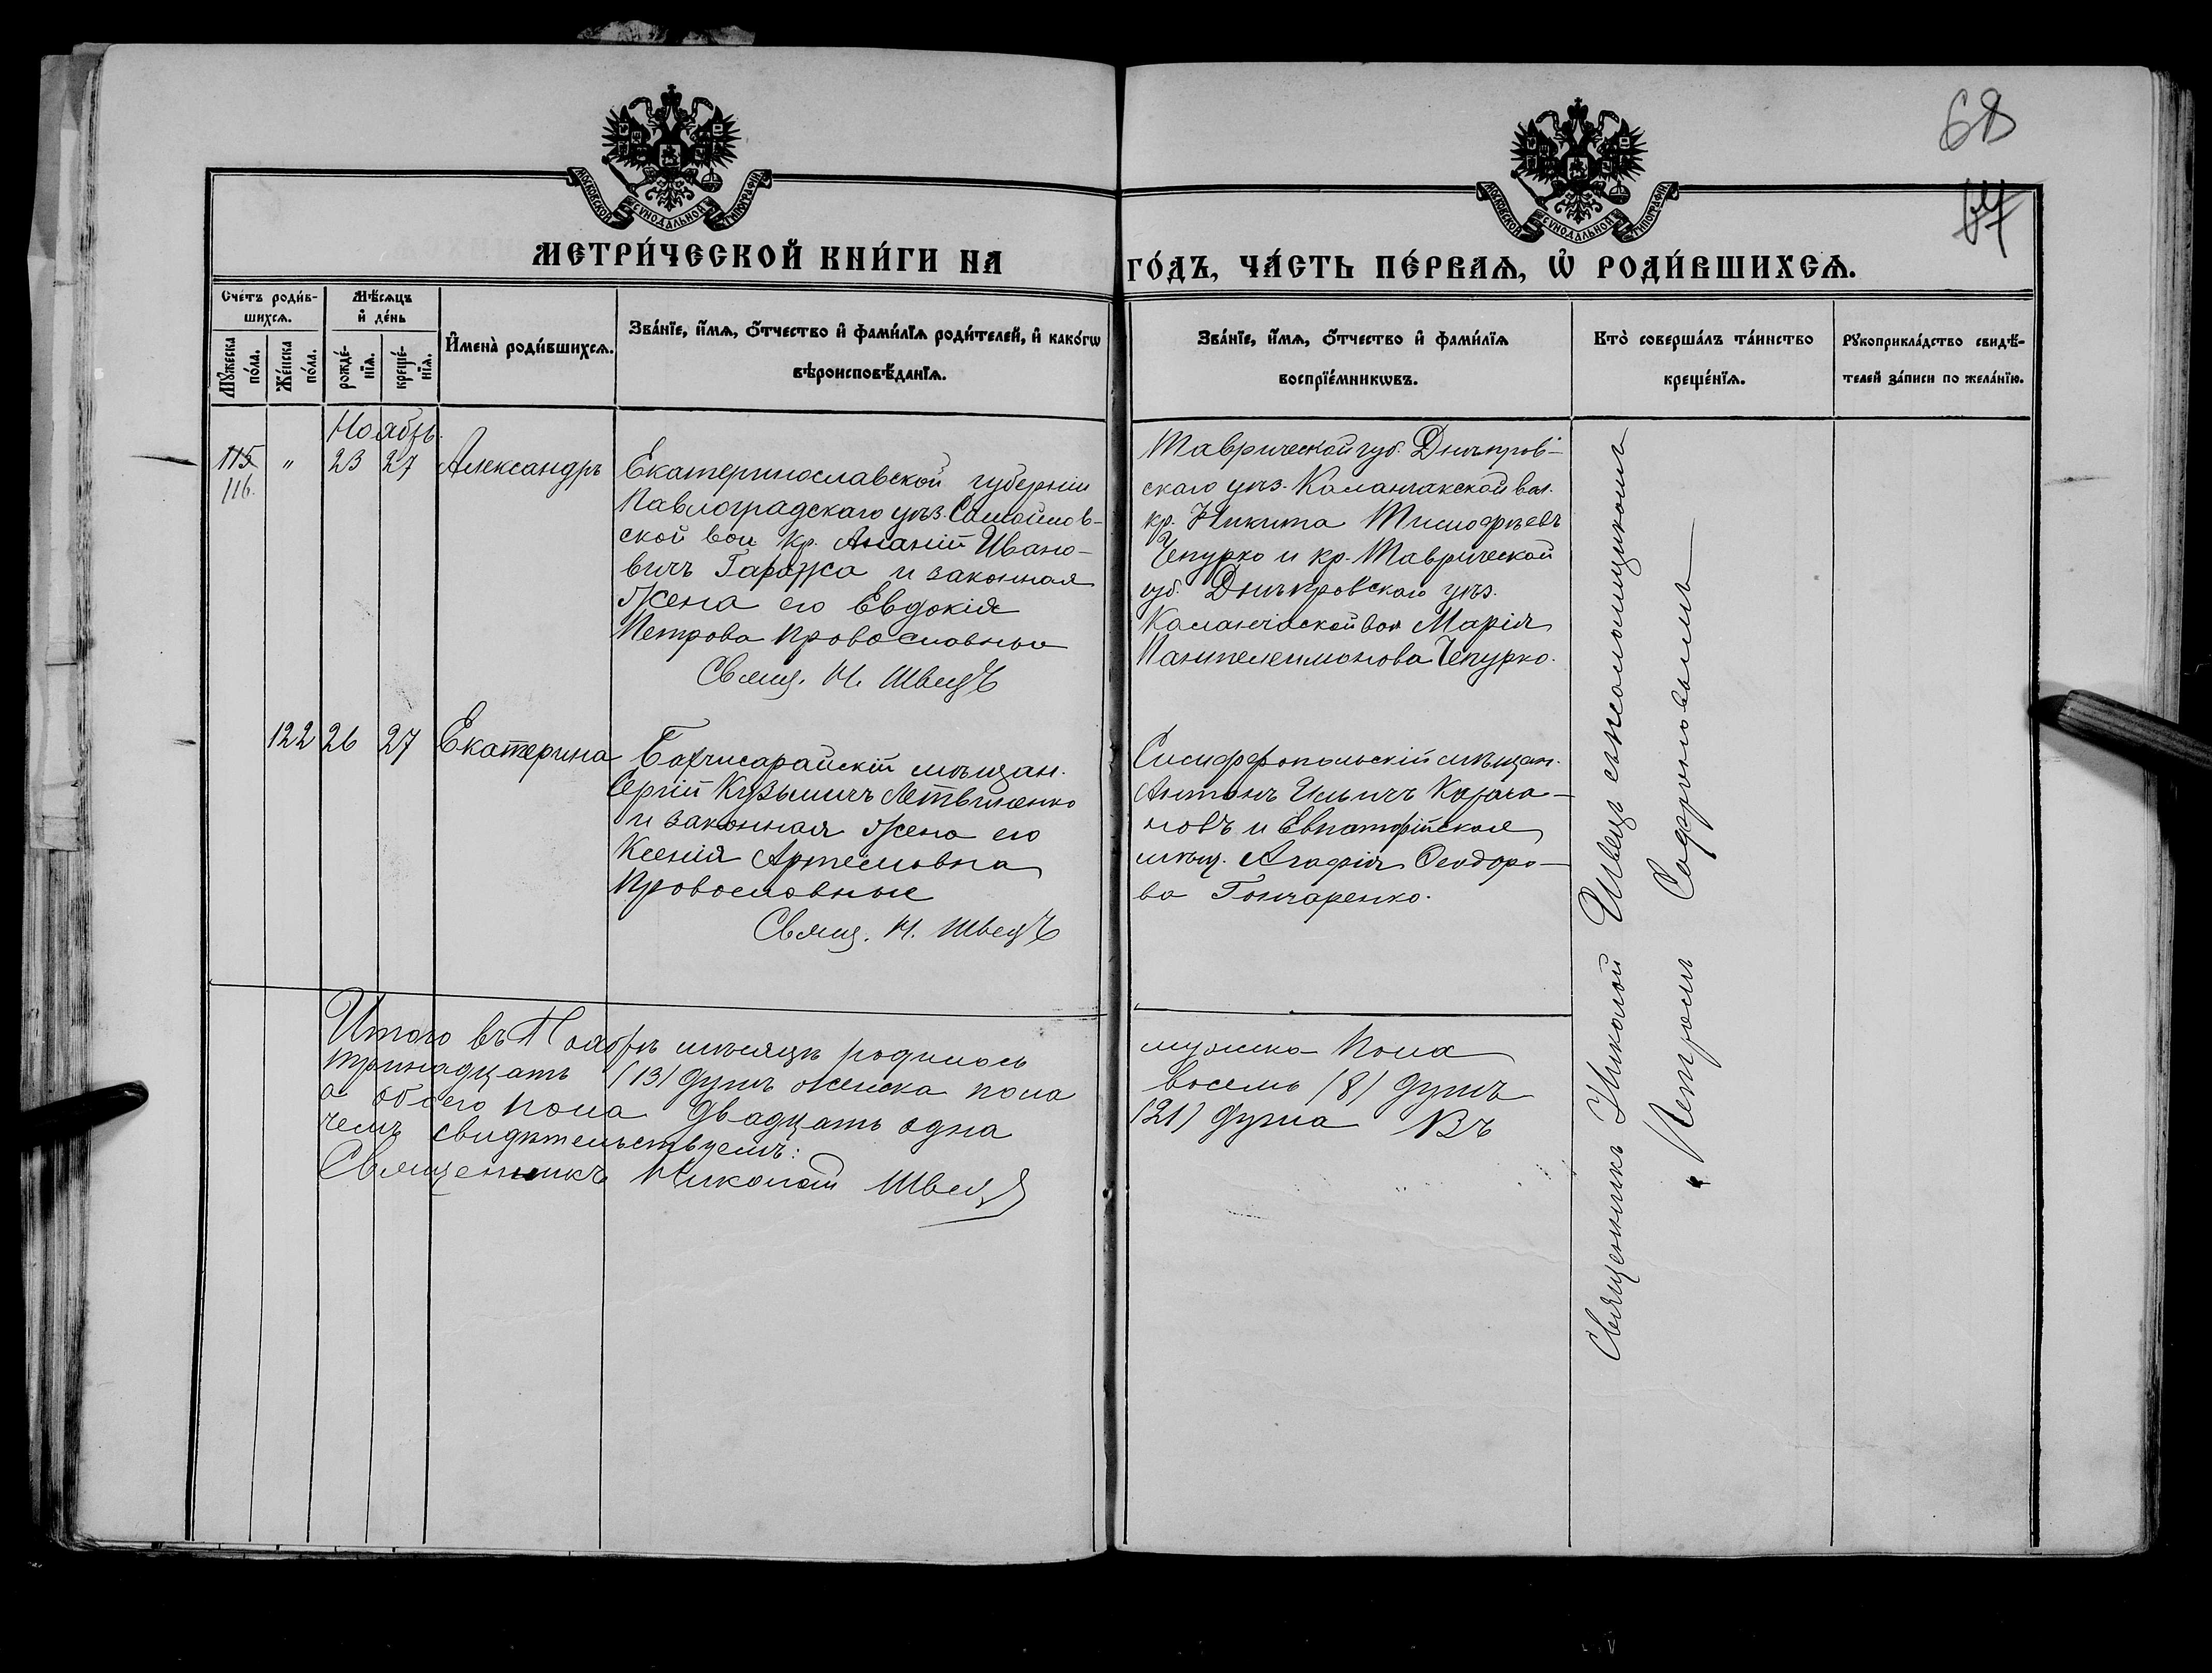 68
67
МОСКОВСКОЙ СѴНОДАЛЬНОЙ ТИПОГРАФІИ
МОСКОВСКОЙ СѴНОДАЛЬНОЙ ТИПОГРАФІИ
МЕТРИ́ЧЕСКОЙ КНИ́ГИ НА
ГО́ДЪ, ЧА́СТЬ ПЕ́РВАѦ, Ѡ҆ РОДИ́ВШИХСѦ.
Сче́тъ роди́в-
шихсѧ.
Мꙋ́жеска
по́ла.
Же́нска
по́ла.
Мѣ́сѧцъ
и҆ де́нь
рожде́-
нїѧ.
креще́-
нїѧ.
И҆мена̀ роди́вшихсѧ.
Зва́нїе, и҆́мѧ, ѻ҆́тчество и҆ фами́лїѧ роди́телей, и҆ како́гѡ
вѣроисповѣ́данїѧ.
Зва́нїе, и҆́мѧ, ѻ҆́тчество и҆ фами́лїѧ
воспрїе́мникѡвъ.
Кто̀ соверша́лъ та́инство
креще́нїѧ.
Рꙋкоприкла́дство свидѣ́-
телей за́писи по жела́нїю.
Ноябрь.
115
116.
"
23
27
Александръ
Екатеринославской губерніи
Павлоградскаго уѣз. Самойлов-
ской вол кр. Ананій Ивано-
вичъ Гаража и законная
жена его Евдокія
Петрова православные
Свящ. Н. Швецъ
Таврической губ. Днѣпров-
скаго уѣз. Каланчакской вол.
кр. Никита Тимофѣевъ
Чепурко и кр. Таврической
губ. Днѣпровскаго уѣз.
Каланчакской вол Марія
Пантелеимонова Чепурко.
122
26
27
Екатерина
Бахчисарайскій мѣщан.
Сергій Кузьмичъ Летвиненко
и законная жена его
Ксенія Артемовна
православные
Свящ. Н. Швецъ
Симферопольскій мѣщан.
Антонъ Ильичъ
новъ и Евпаторійская
мѣщ. Агафія Феодоро-
ва Гончаренко.
Священникъ Николай Швецъ съ псаломщикомъ
Петромъ
Итого въ Ноябрѣ мѣсяцѣ родилось
мужска пола
тринадцать (13) душъ женска пола
восемь (8) душъ
а обоего пола двадцать одна
(21) душа Въ
чемъ свидѣтельствуемъ:
Священникъ Николай Швецъ